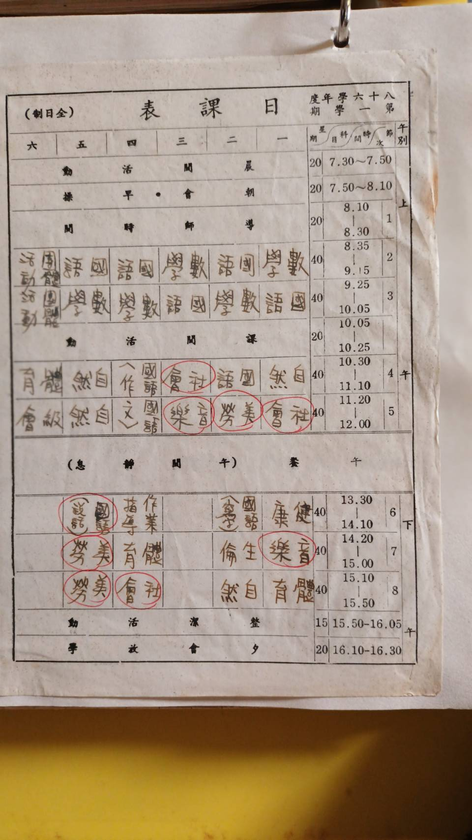 八十六學年度
第一學期
日課表
(全日制)
午別 節次 時間 科目 星期 一 二 三 四 五 六
上午
7.30~7.50 20 晨間活動
7.50~8.10 20 朝會•早操
1 8.10|8.30 20 導師時間
2 8.35|9.15 40 數學 國語 數學 國語 國語 團體活動
3 9.25|10.05 40 國語 數學 國語 數學 數學 團體活動
10.05|10.25 20 課間活動
4 10.30|11.10 40 自然 國語 社會 國語(作 自然 體育
5 11.20|12.00 40 社會 美勞 音樂 國語文) 自然 級會
午餐(午間靜息)
下午
6 13.30|14.10 40 健康 國語 作業指導 國語(說話)
7 14.20|15.00 40 音樂 生倫 體育 美勞
8 15.10|15.50 40 體育 自然 社會 美勞
15.50-16.05 15 整潔活動
16.10-16.30 20 夕會放學